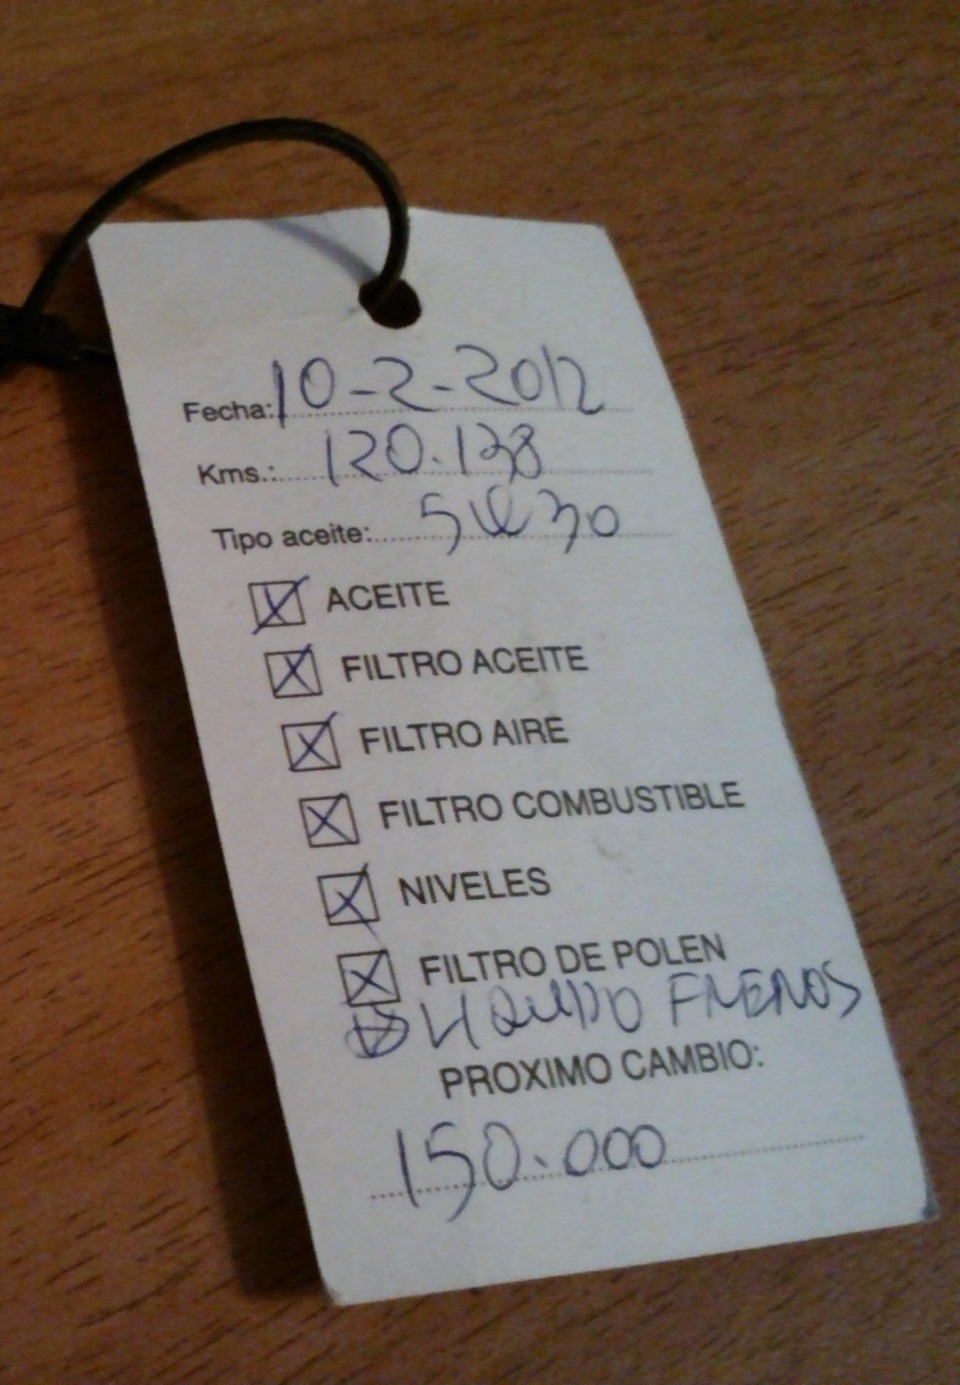 Fecha: 10-2-2012
Kms.: 120.138
Tipo aceite: 5W30
ACEITE
FILTRO ACEITE
FILTRO AIRE
FILTRO COMBUSTIBLE
NIVELES
FILTRO DE POLEN
LIQUIDO FRENOS
PROXIMO CAMBIO:
150.000